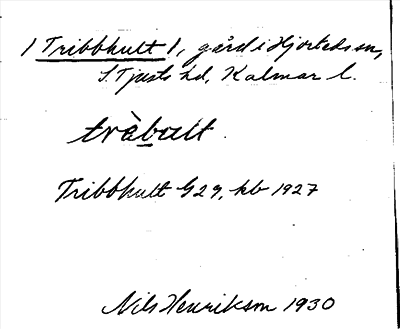 /Tribbhult/, gård i Hjorteds sn,
S. Tjusts hd, Kalmar l.
tràbult.
Tribbhult G29, kb 1927
Nils Henrikson 1930